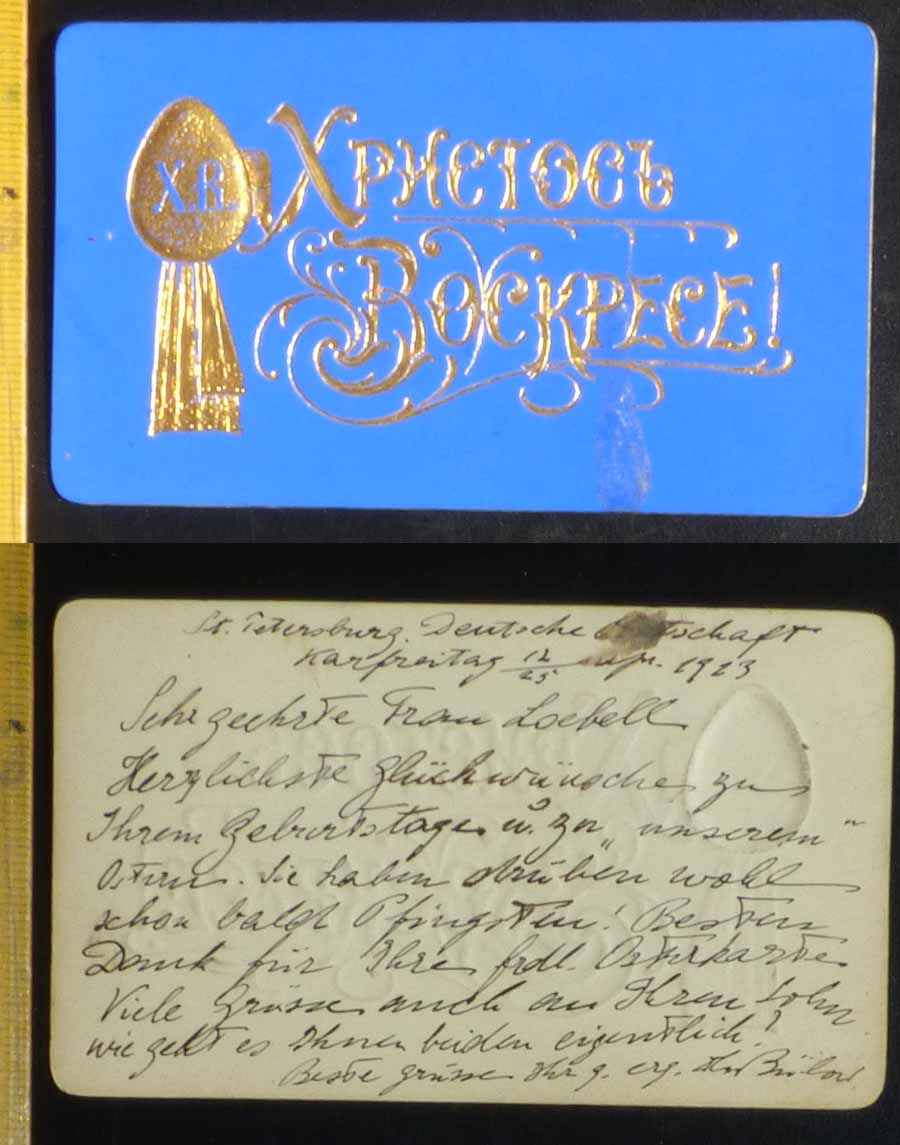 Х.В.
Христосъ
Воскресе!
St. Petersburg. Deutsche Botschaft
Karfreitag 12/25 Apr. 1913
Sehr geehrte Frau Loebell
Herzlichste Glückwünsche zu
Ihrem Geburtstage u. zu „unserem“
Ostern. Sie haben drüben wohl
schon bald Pfingsten! Besten
Dank für Ihre frdl. Osterkarte
Viele Grüsse auch an Ihren Sohn
wie geht es Ihnen beiden eigentlich?
Beste grüsse Ihr g. erg. Bülow